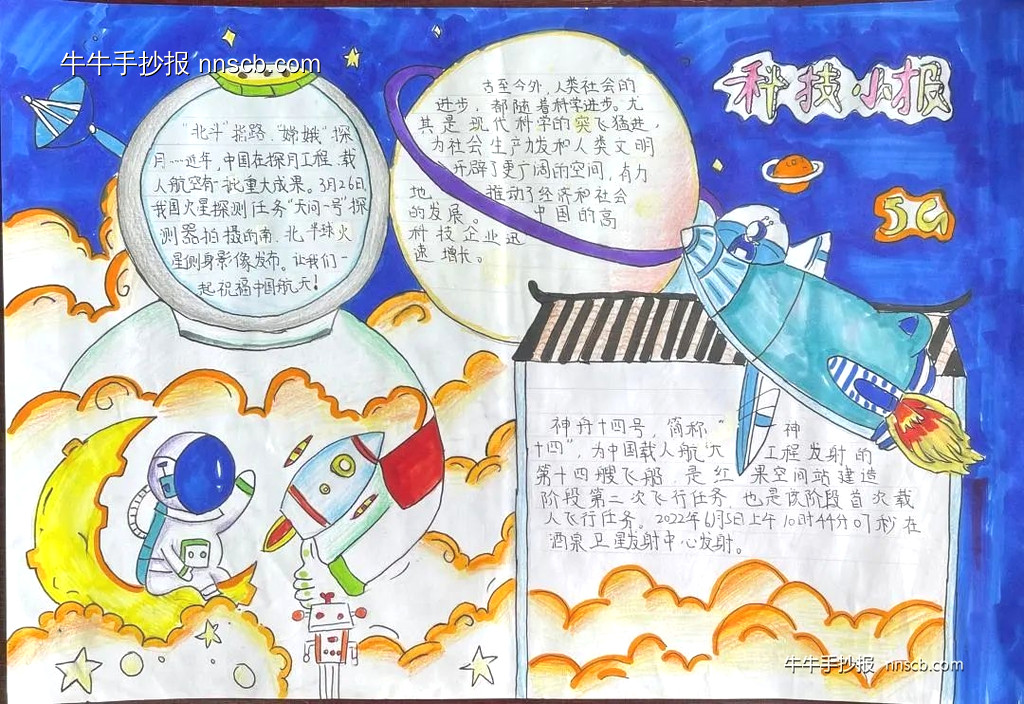 牛牛手抄报 nnscb.com
科技小报
5G
"北斗"指路,"嫦娥"探
月……近年,中国在探月工程、载
人航空有一批重大成果。3月26日,
我国火星探测任务"天问一号"探
测器拍摄的南、北半球火
星侧身影像发布。让我们一
起祝福中国航天!
古至今外,人类社会的
进步,都随着科学进步。尤
其是现代科学的突飞猛进,
为社会生产力发和人类文明
开辟了更广阔的空间,有力
地 推动了经济和社会
的发展。 中国的高
科技企业迅
速增长。
神舟十四号,简称"神
十四",为中国载人航 工程发射的
第十四艘飞船,是 空间站建造
阶段第二次飞行任务,也是该阶段首次载
人飞行任务。2022年6月5日上午10时44分07秒在
酒泉卫星发射中心发射。
牛牛手抄报 nnscb.com